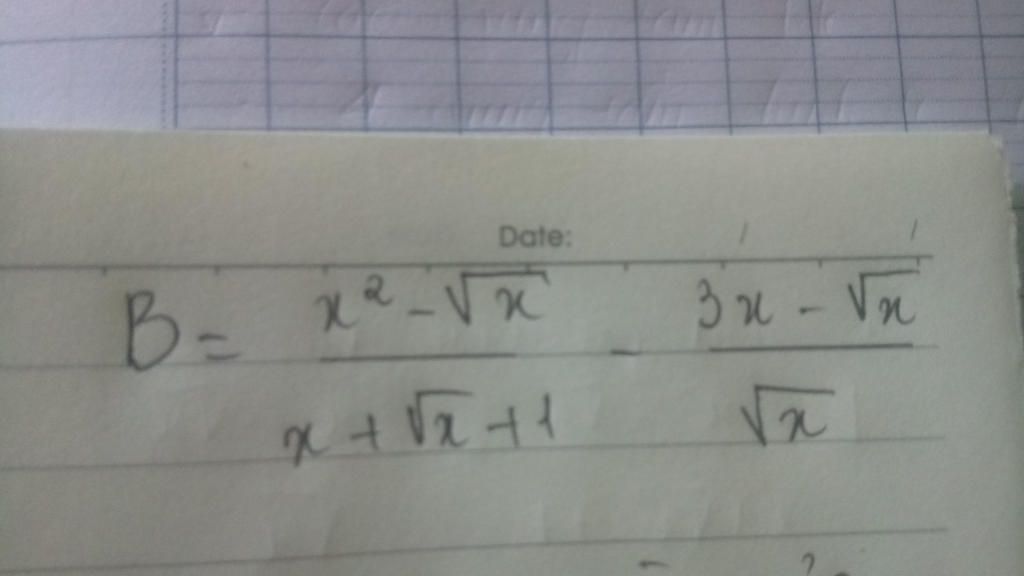 Date: / /
B = \frac{x^2 - \sqrt{x}}{x + \sqrt{x} + 1} - \frac{3x - \sqrt{x}}{\sqrt{x}}